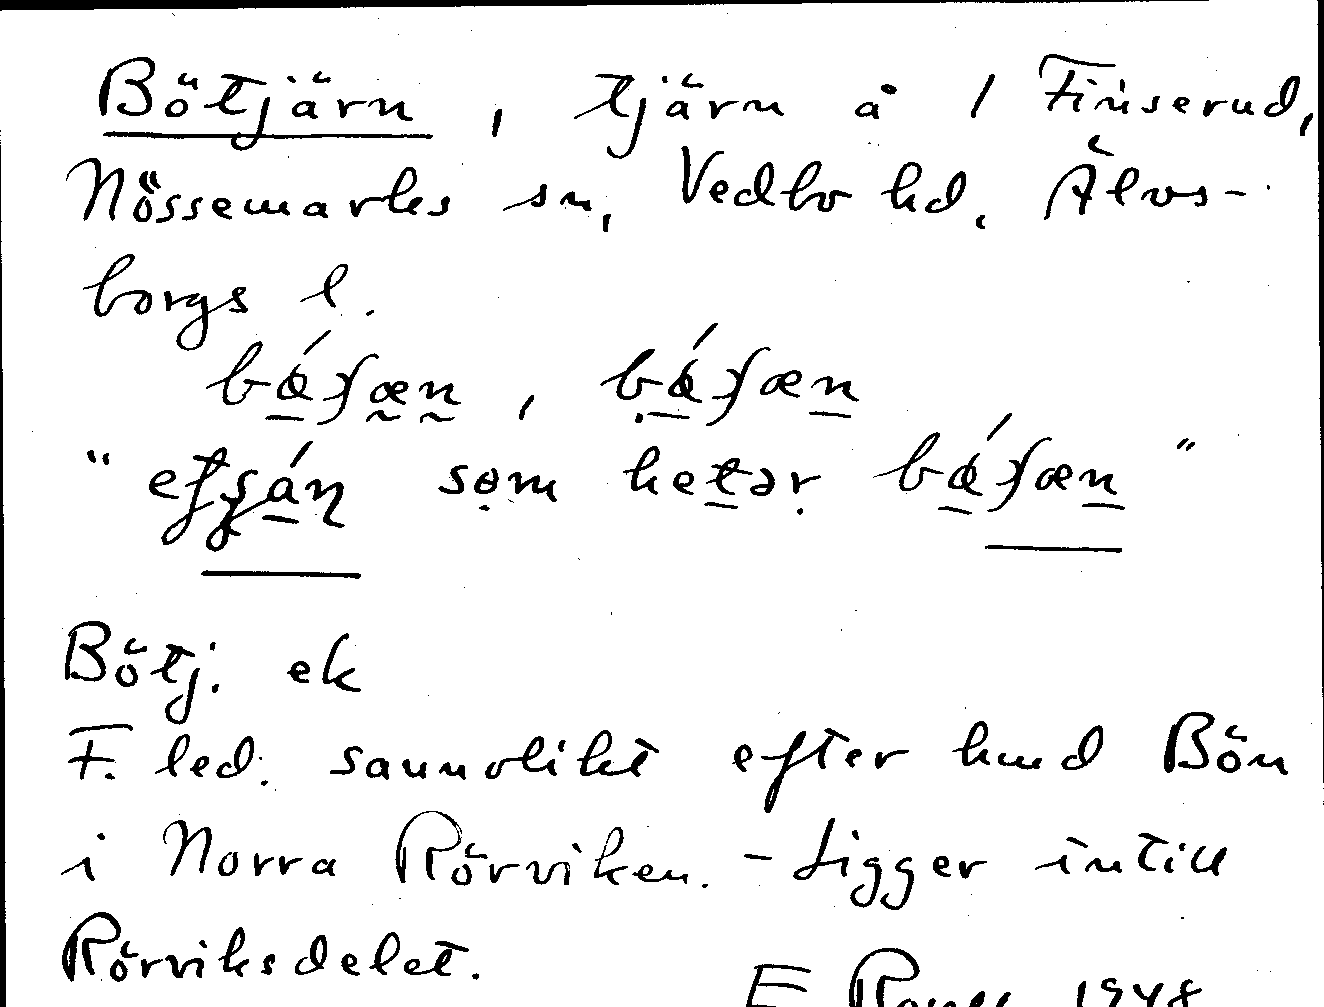 Bötjärn, tjärn å 1 Finserud,
Nössemarks sn, Vedbo hd. Älvs-
borgs l.
som hetər
Bötj. ek
F. led. sannolikt efter hmd Bön
i Norra Rörviken. - Ligger intill
Rörviksdelet.
E 1948